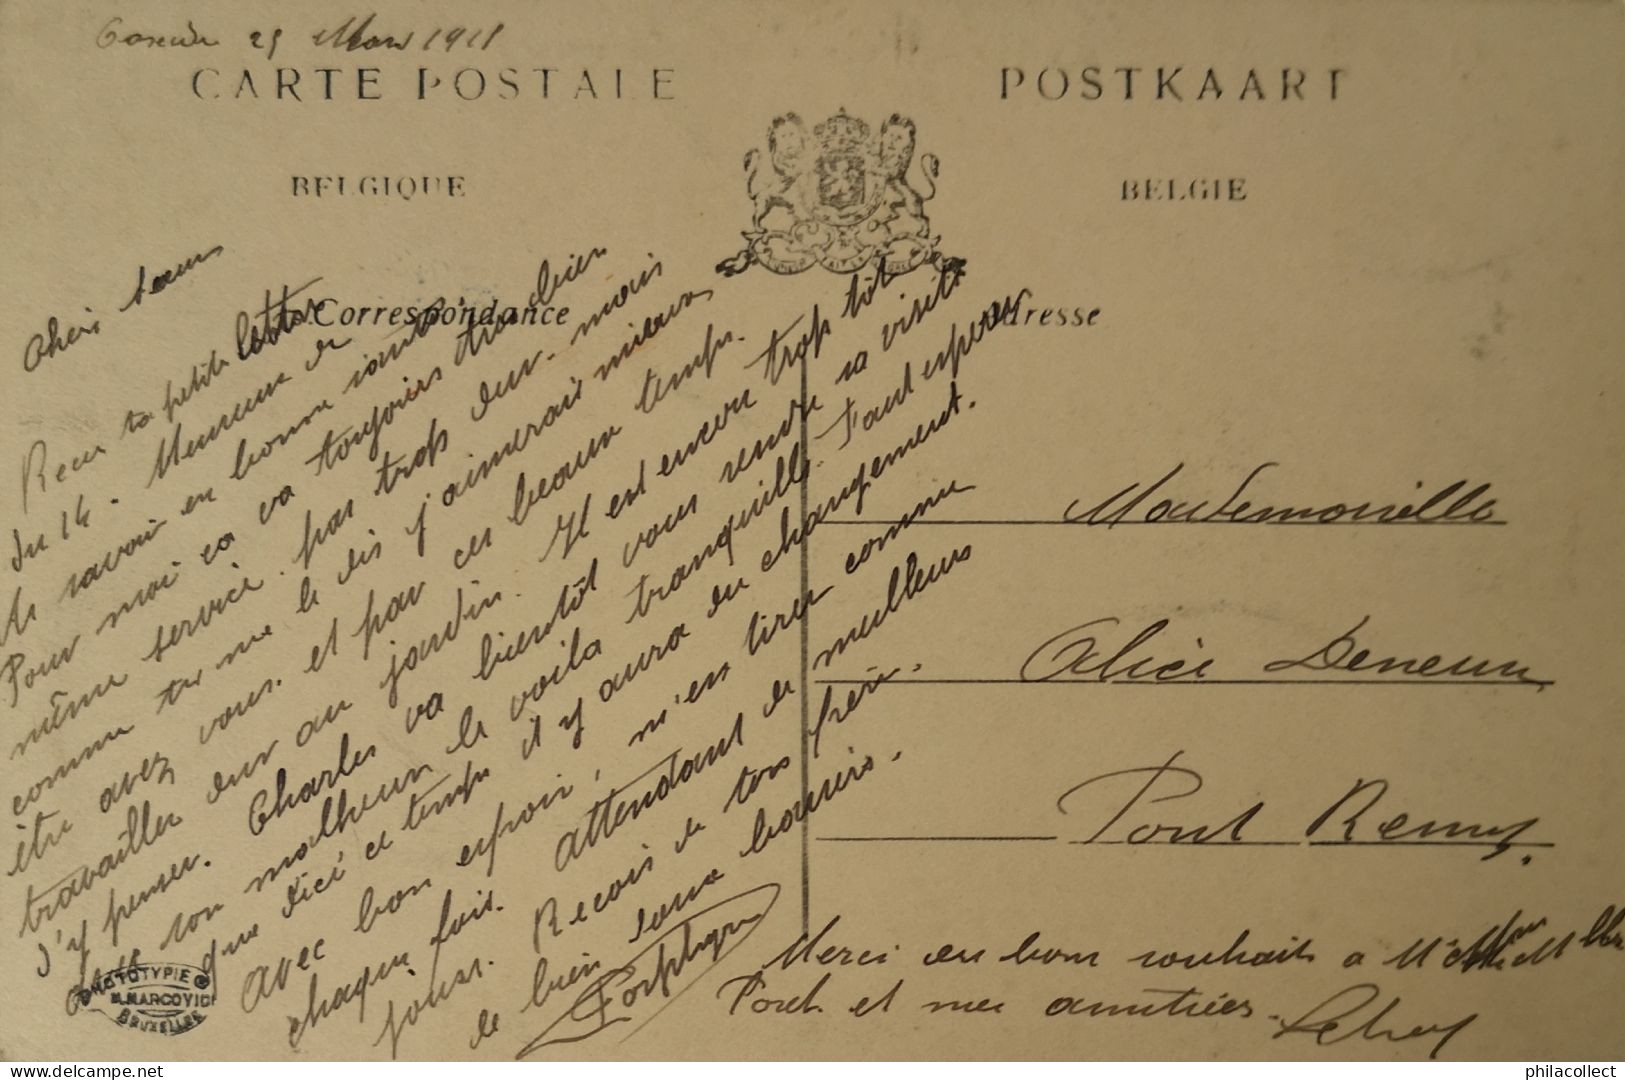 25 Mars 1918
CARTE POSTALE
POSTKAART
BELGIQUE
BELGIE
Correspondance
Adresse
Chère sœur
Recu ta petite lettre
du 14. Heureux de
te savoir en bonne santé
Pour moi ca va toujours très bien
même service. pas trop dur. mais
comme tu me le dis j'aimerais mieux
être avez vous. et par ces beaux temps.
travailler dur au jardin. Il est encore trop tôt
d'y penser. Charles va bientôt vous rendre sa visite
son malheur le voila tranquille. Faut esperer
que d'ici ce temps il y aura du changement.
avec bon espoir, m'en tirer comme
chaque fois. attendant de meilleurs
jours. Recois de ton frère.
le bien doux baisers.
Porphyre
Mademoiselle
Alice Deneux
Pont Remy.
Merci du bon souhaits a
et mes amitiées.
PHOTOTYPIE
M.MARCOVICI
BRUXELLES
www.delcampe.net
philacollect